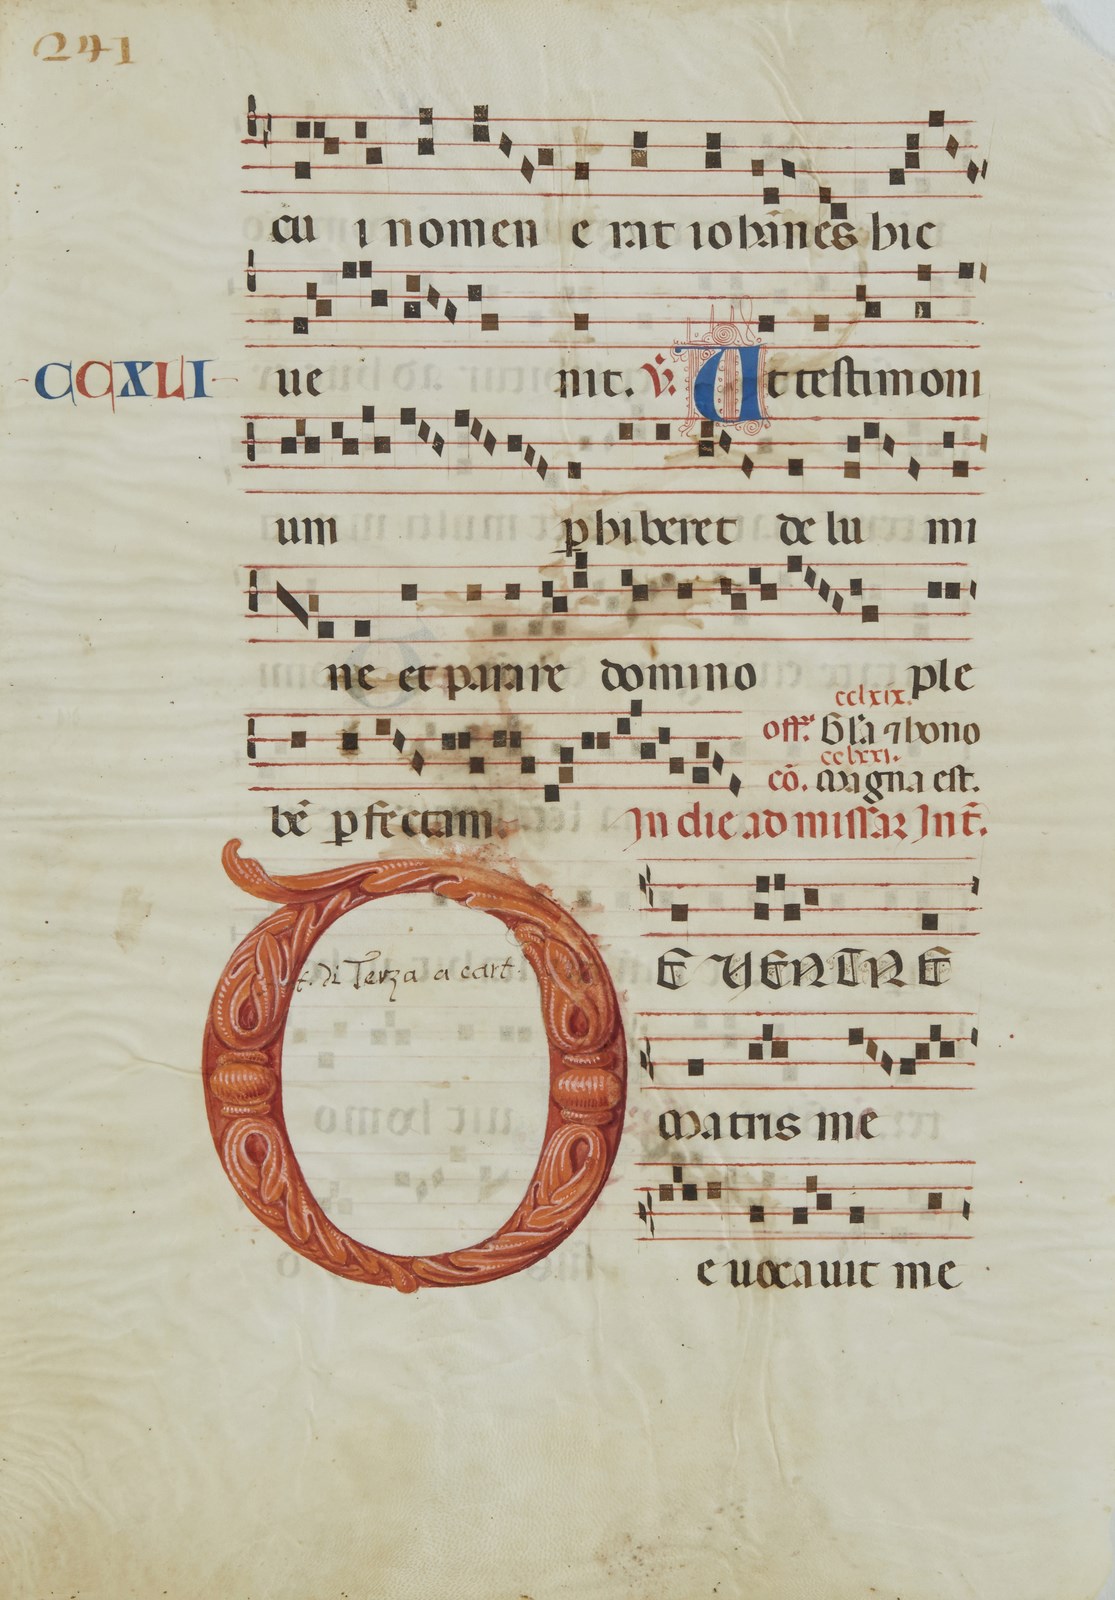 241
cu i nomen e rat iohānes hic
CCXLI
ue nit. ℣. Ut testimoni
um ꝑhiberet de lu mi
ne et parare domino ple
cclxix.
off. Gl'a ⁊ hono
cclxxi.
cō. Magna est.
bē ꝑfectam. In die ad missaꝝ Int̄.
DE VENTRE
t. di Terza a cart.
matris me
e uocauit me